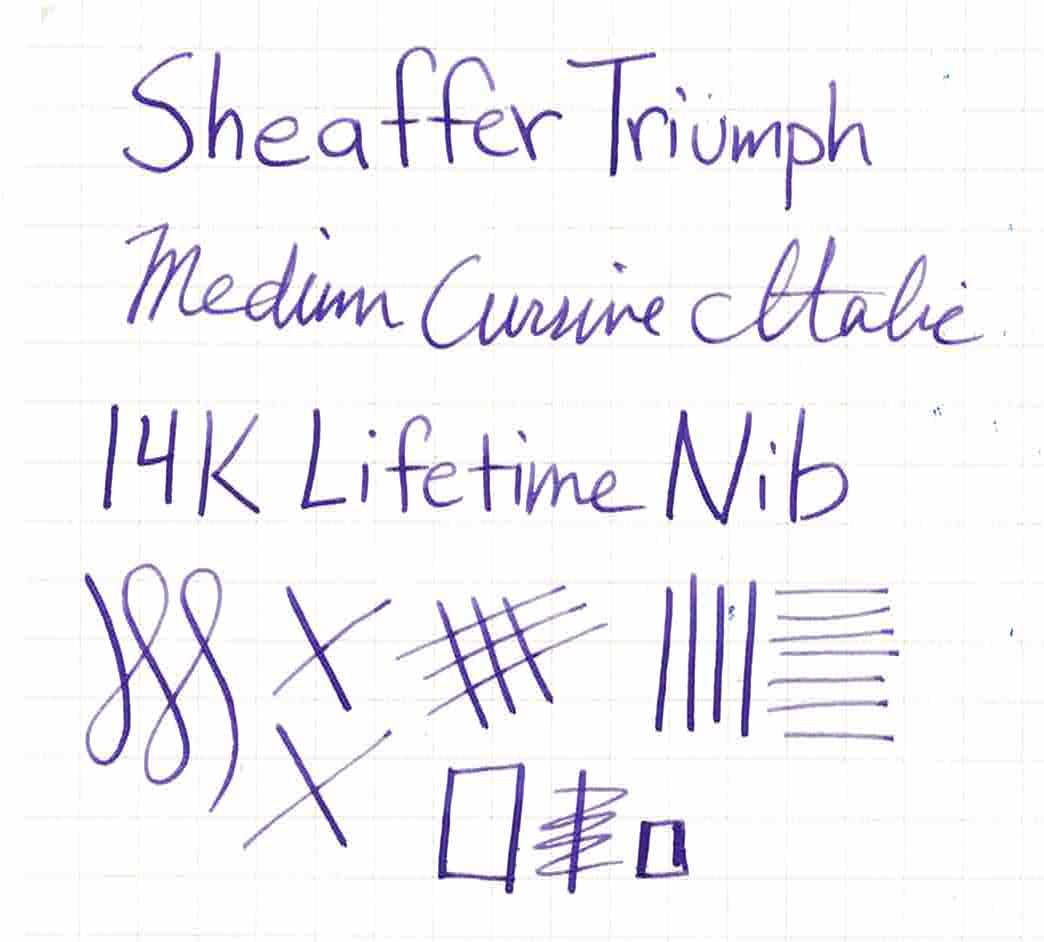 Sheaffer Triumph
Medium Cursive Italic
14K Lifetime Nib